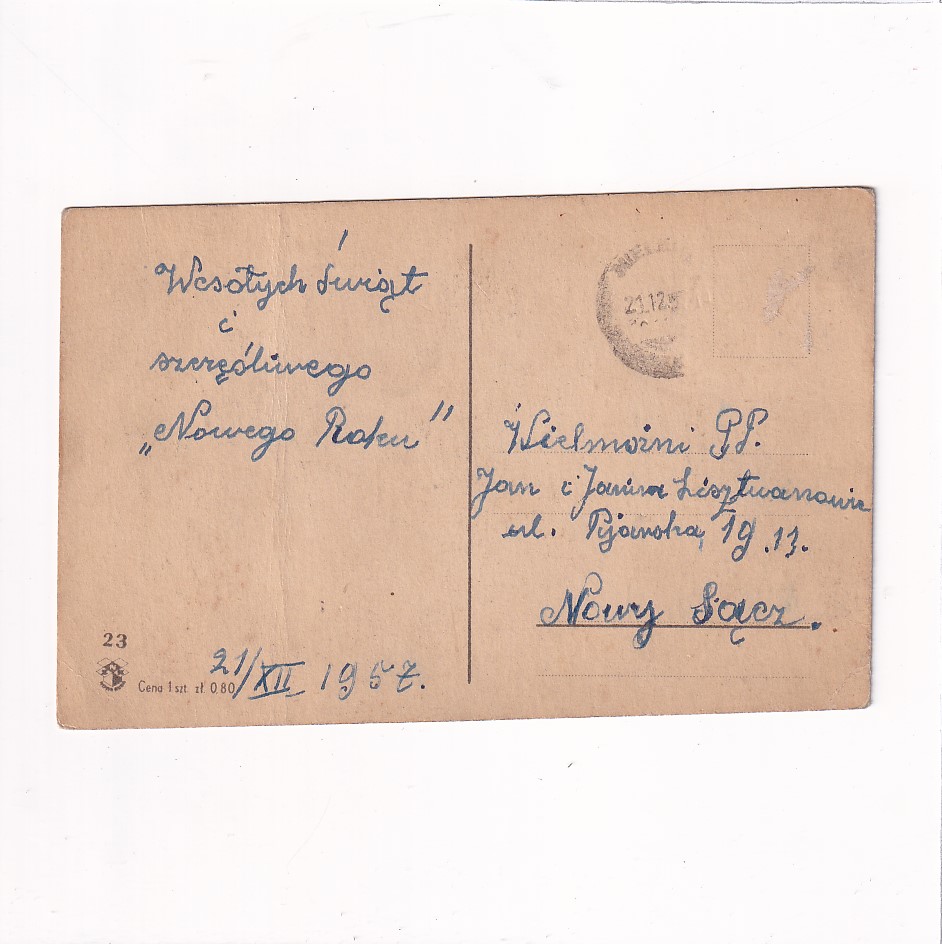 Wesołych Świąt
i
szczęśliwego
„Nowego Roku"
23
Cena 1 szt. zł 0.80
21/XII 1957.
21.12.5
Wielmożni PP.
Jan i Janina Lisztwanowie
ul. Pijarska, 19
Nowy Sącz.